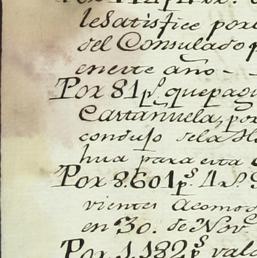 le Satisfice por
del Consulado p
en este año -
Por 81 p.s que pag
Castañuela, por
condujo de la Ha
hua para esta C
Por 8.601 p.s 4 r.s
vientes acomo
en 30. de Nov.
Por 1.182 p.s val